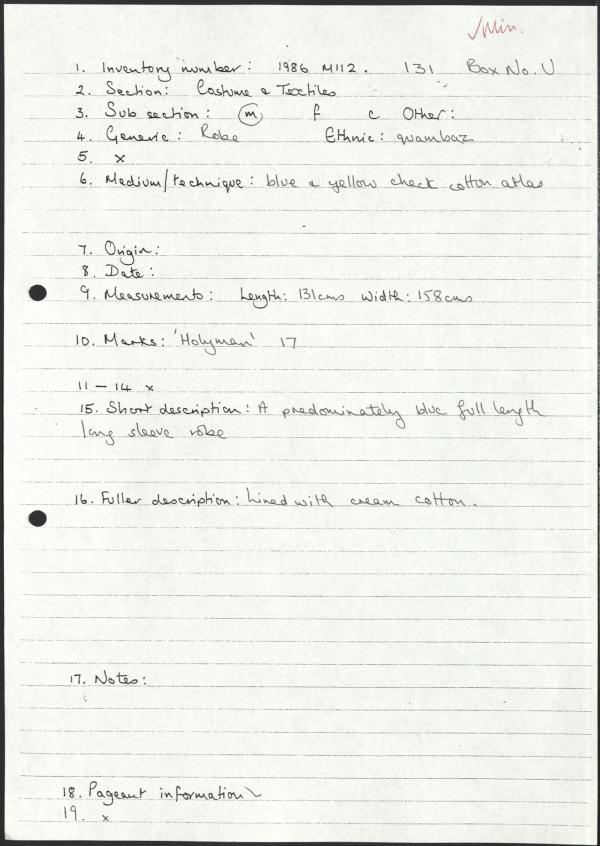 ✓Min.
1. Inventory number: 1986 M112. 131 Box No. U
2. Section: Costume & Textiles
3. Sub section: m f c Other:
4. Generic: Robe Ethnic: quambaz
5. x
6. Medium/technique: blue & yellow check cotton atlas
7. Origin:
8. Date:
9. Measurements: Length: 131cms Width: 158cms
10. Marks: 'Holyman' 17
11 - 14 x
15. Short description: A predominately blue full length
long sleeve robe
16. Fuller description: Lined with cream cotton.
17. Notes:
18. Pageant information
19. x